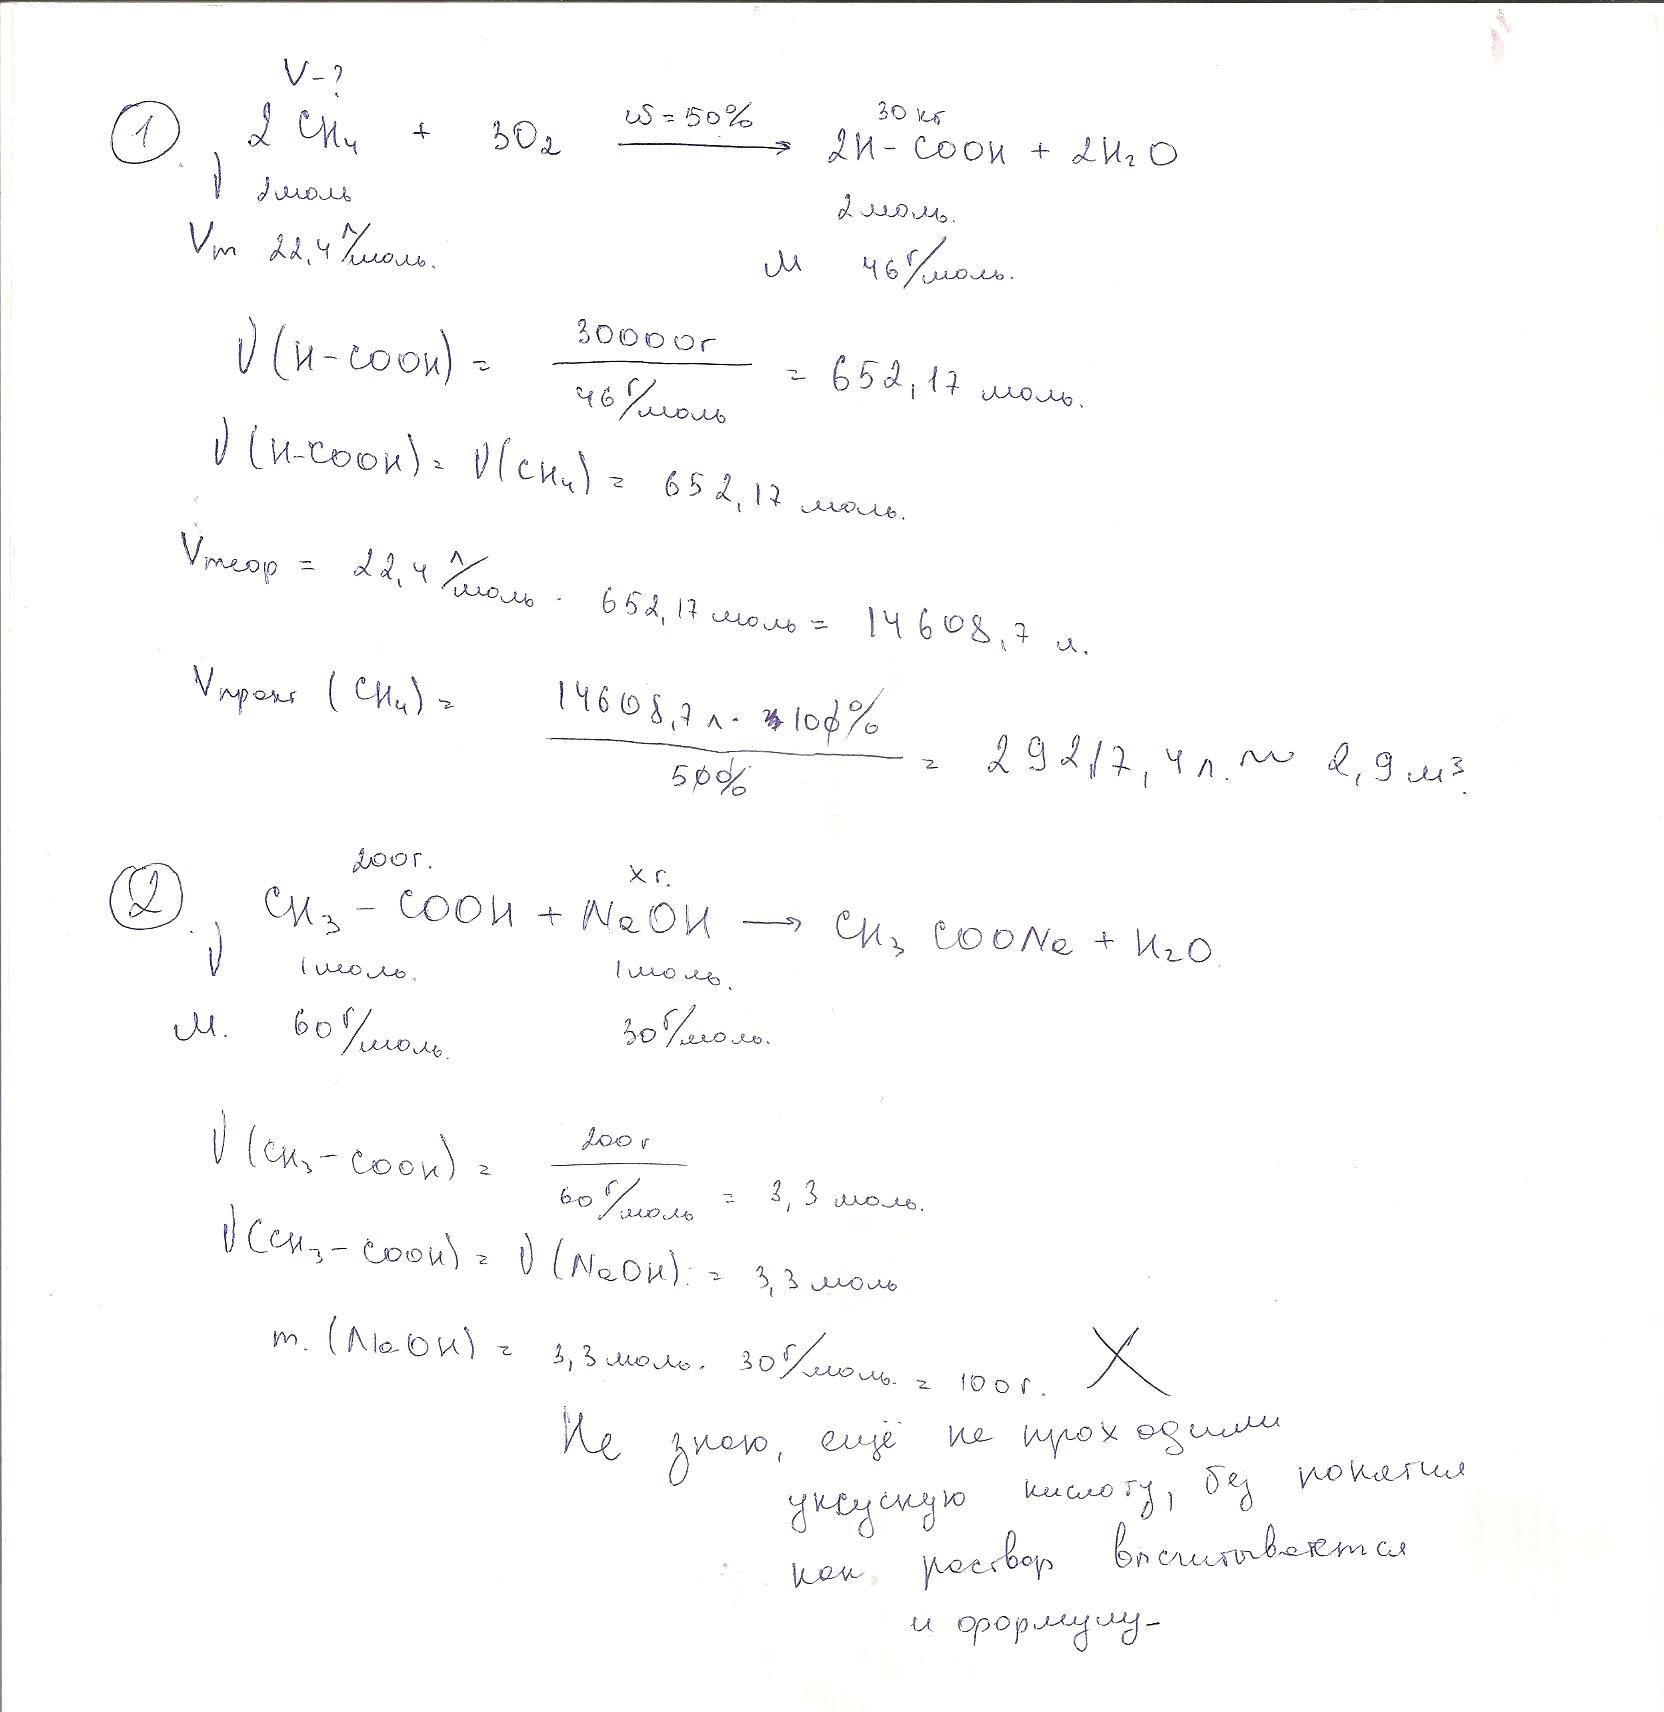 V-?
① 2CH₄ + 3O₂ ω=50% → 30 кг 2H-COOH + 2H₂O
ν 2моль 2моль.
Vm 22,4 л/моль. M 46 г/моль.
ν(H-COOH) = 30000г / 46 г/моль = 652,17 моль.
ν(H-COOH) = ν(CH₄) = 652,17 моль.
Vтеор = 22,4 л/моль · 652,17 моль = 14608,7 л.
Vпракт (CH₄) = 14608,7 л · 100% / 50% = 29217,4 л. ~ 2,9 м³.
200г. x г.
② CH₃-COOH + NaOH → CH₃COONa + H₂O
ν 1моль. 1моль.
M. 60 г/моль. 30 г/моль.
ν(CH₃-COOH) = 200г / 60 г/моль = 3,3 моль.
ν(CH₃-COOH) = ν(NaOH) = 3,3 моль
m.(NaOH) = 3,3 моль. 30 г/моль. = 100г. X
Не знаю, ещё не проходили
уксусную кислоту, без понятия
как раствор высчитывается
и формулу-